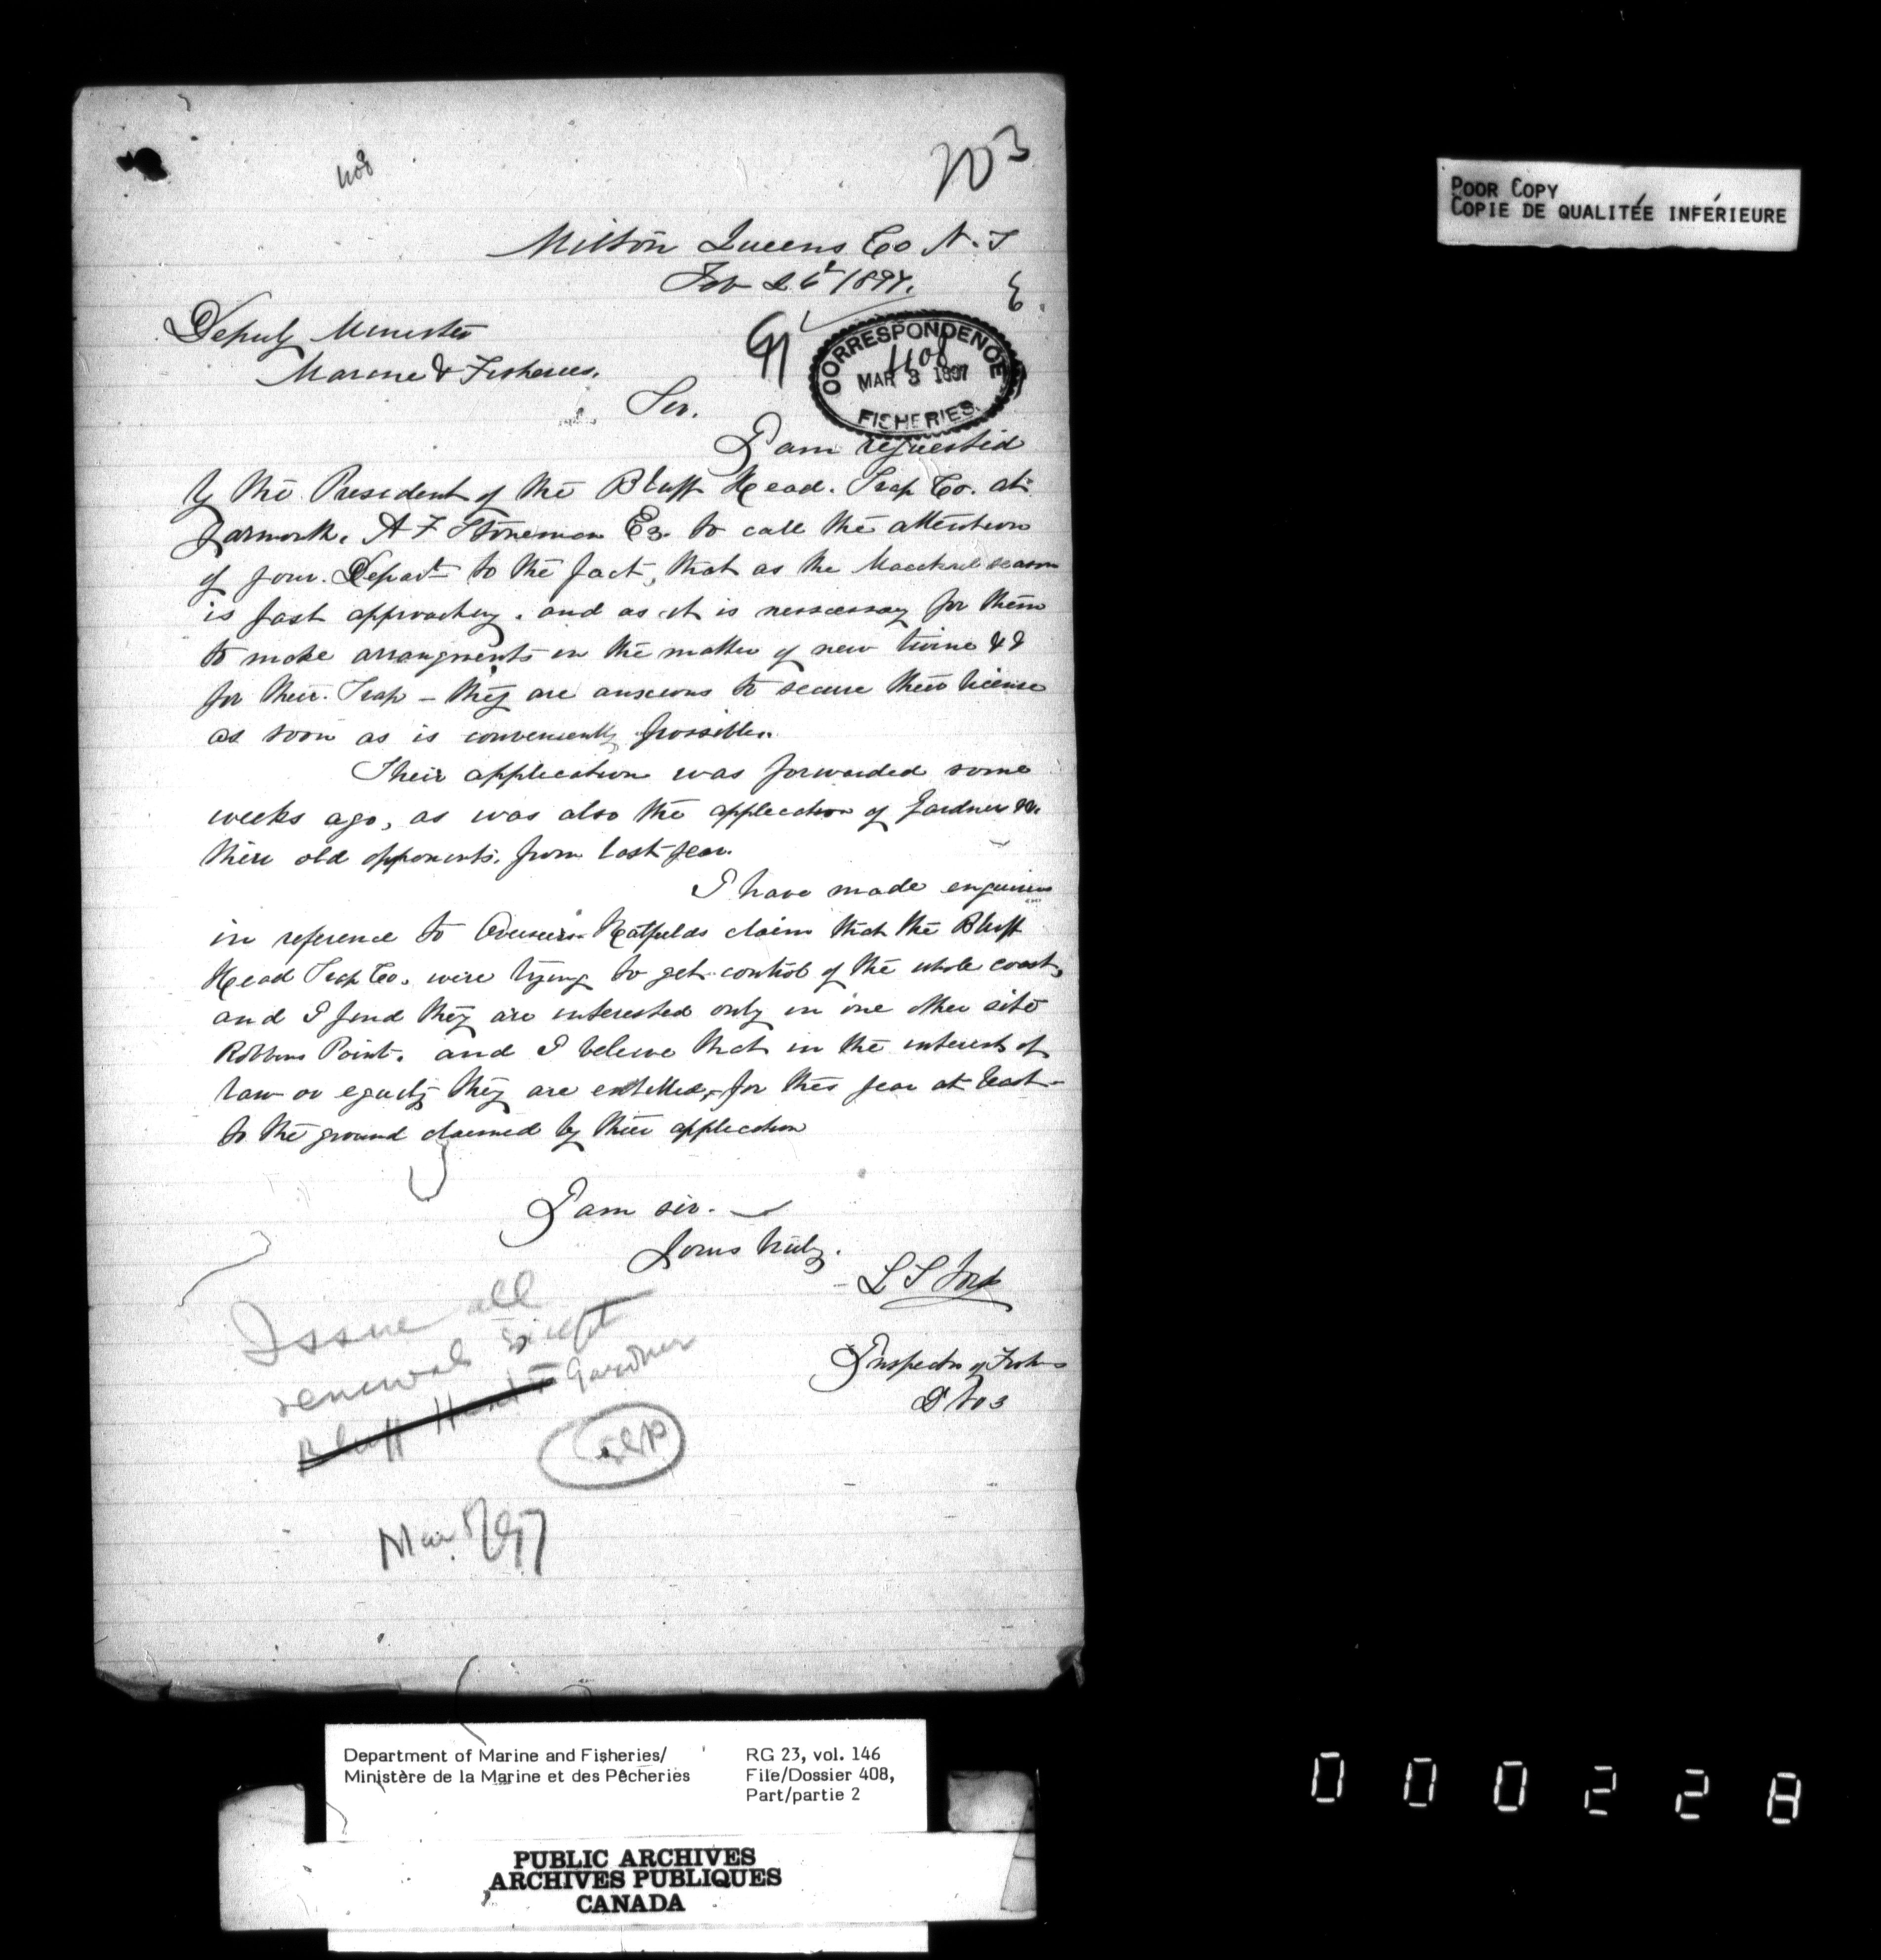 408
203
Milton Queens Co N.S
Feb 26 1897.
Deputy Minister
Marine & Fisheries.
POOR COPY
COPIE DE QUALITÉE INFÉRIEURE
CORRESPONDENCE
MAR 3 1897
FISHERIES.
Sir.
I am requested
by the President of the Bluff Head. Trap Co. at
Yarmouth. A F Stoneman Es. to call the attention
of your. Depart to the fact, that as the Mackrel season
is fast approachng. and as it is nesscessay for them
to make arrangments in the matter of new twine &
for their. Trap - they are anxious to secure their license
as soon as is conveniently possible.
Their application was forwarded some
weeks ago, as was also the application of Gardner
their old opponents. from last year.
I have made enquiries
in reference to Overseers Hatfields claim that the Bluff
Head Trap Co. were trying to get control of the whole coast,
and I find they are interested only in one other site
Robbins Point. and I beleive that in the interest of
law or equity they are entitled, for this year at least -
to the ground claimed by their application
I am sir.
Yours truly.
L S Ford
Inspector of Fish
D No 3
Issue all
renewals except
Bluff Head Gardner
Mar 5/97
Department of Marine and Fisheries/
Ministère de la Marine et des Pêcheries
RG 23, vol. 146
File/Dossier 408,
Part/partie 2
PUBLIC ARCHIVES
ARCHIVES PUBLIQUES
CANADA
000228